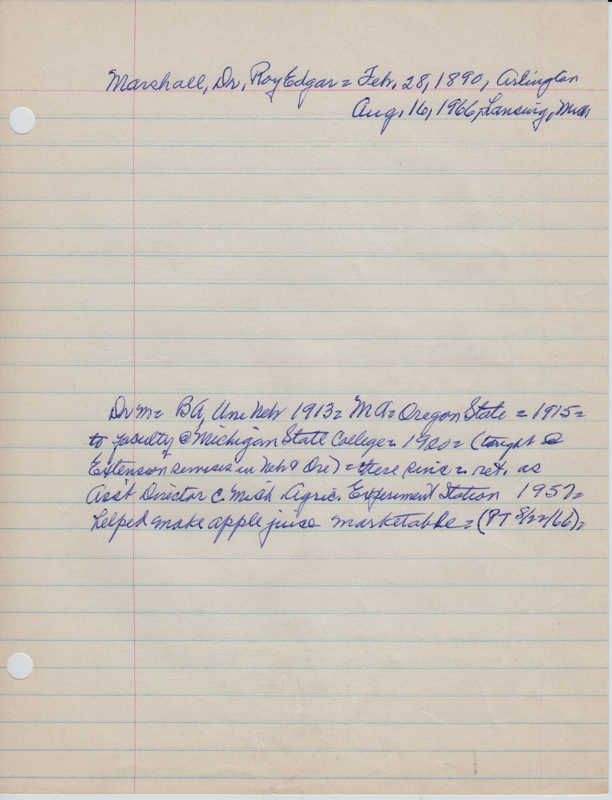 Marshall, Dr. Roy Edgar = Feb. 28, 1890, Arlington
Aug. 16, 1966, Lansing, Mich
Dr M = BA, Uni Neb 1913 = MA = Oregon State = 1915 =
to faculty @ Michigan State College = (taught
Extension services in Neb & Ore) = there since = ret. as
Ass't Director c. Mich. Agric. Experiment Station 1957 =
helped make apple juice marketable = (PT 8/22/66) =